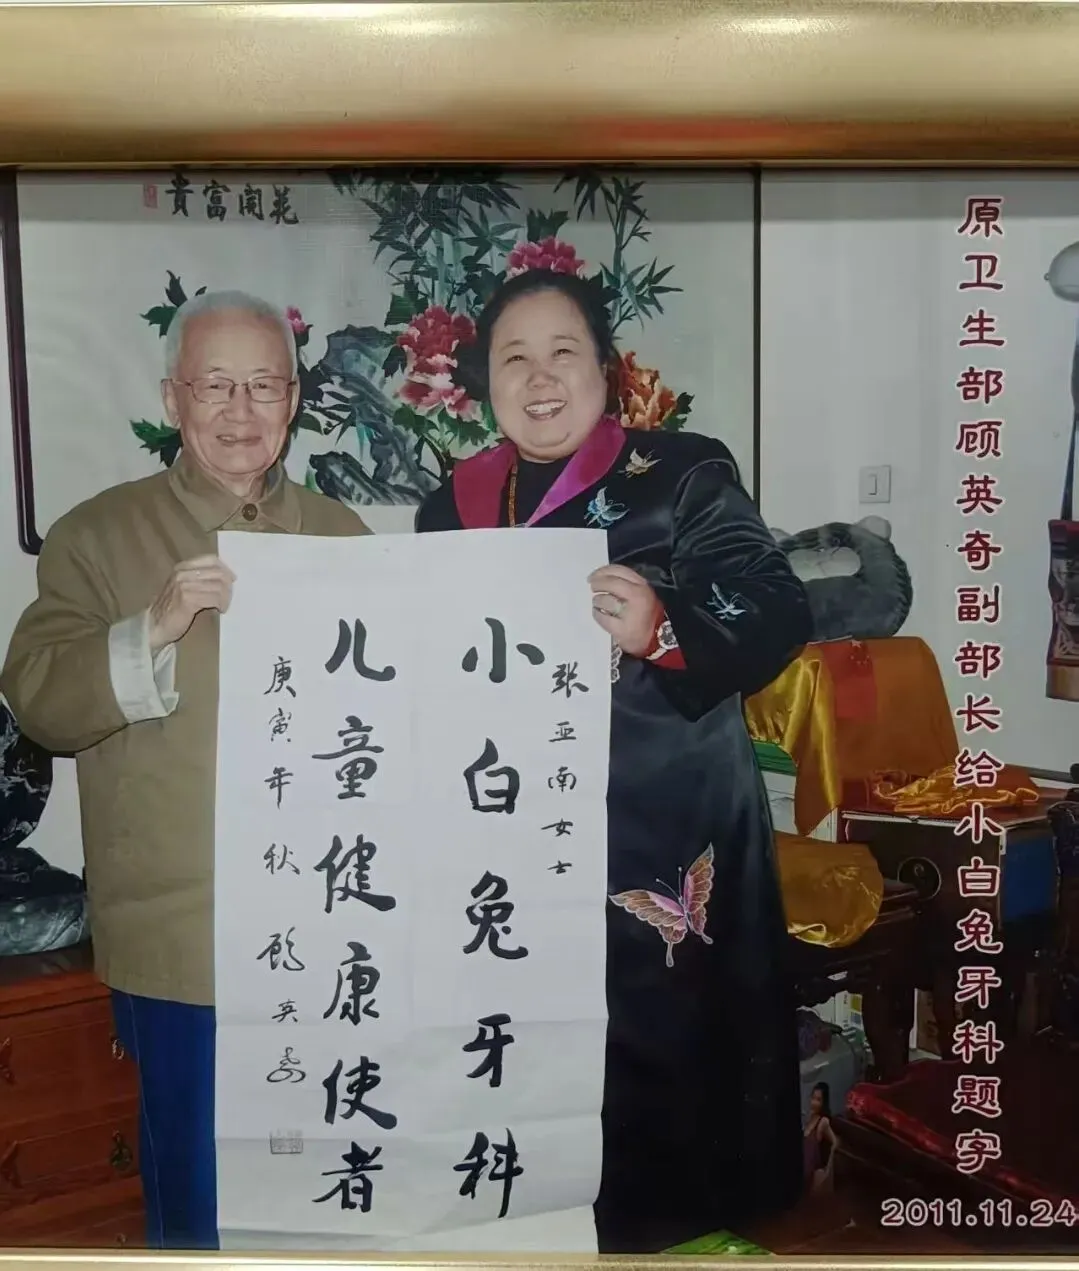 花開富貴
張亚南女士
小白兔牙科
儿童健康使者
庚寅年秋 顾英奇
原卫生部顾英奇副部长给小白兔牙科题字
2011.11.24